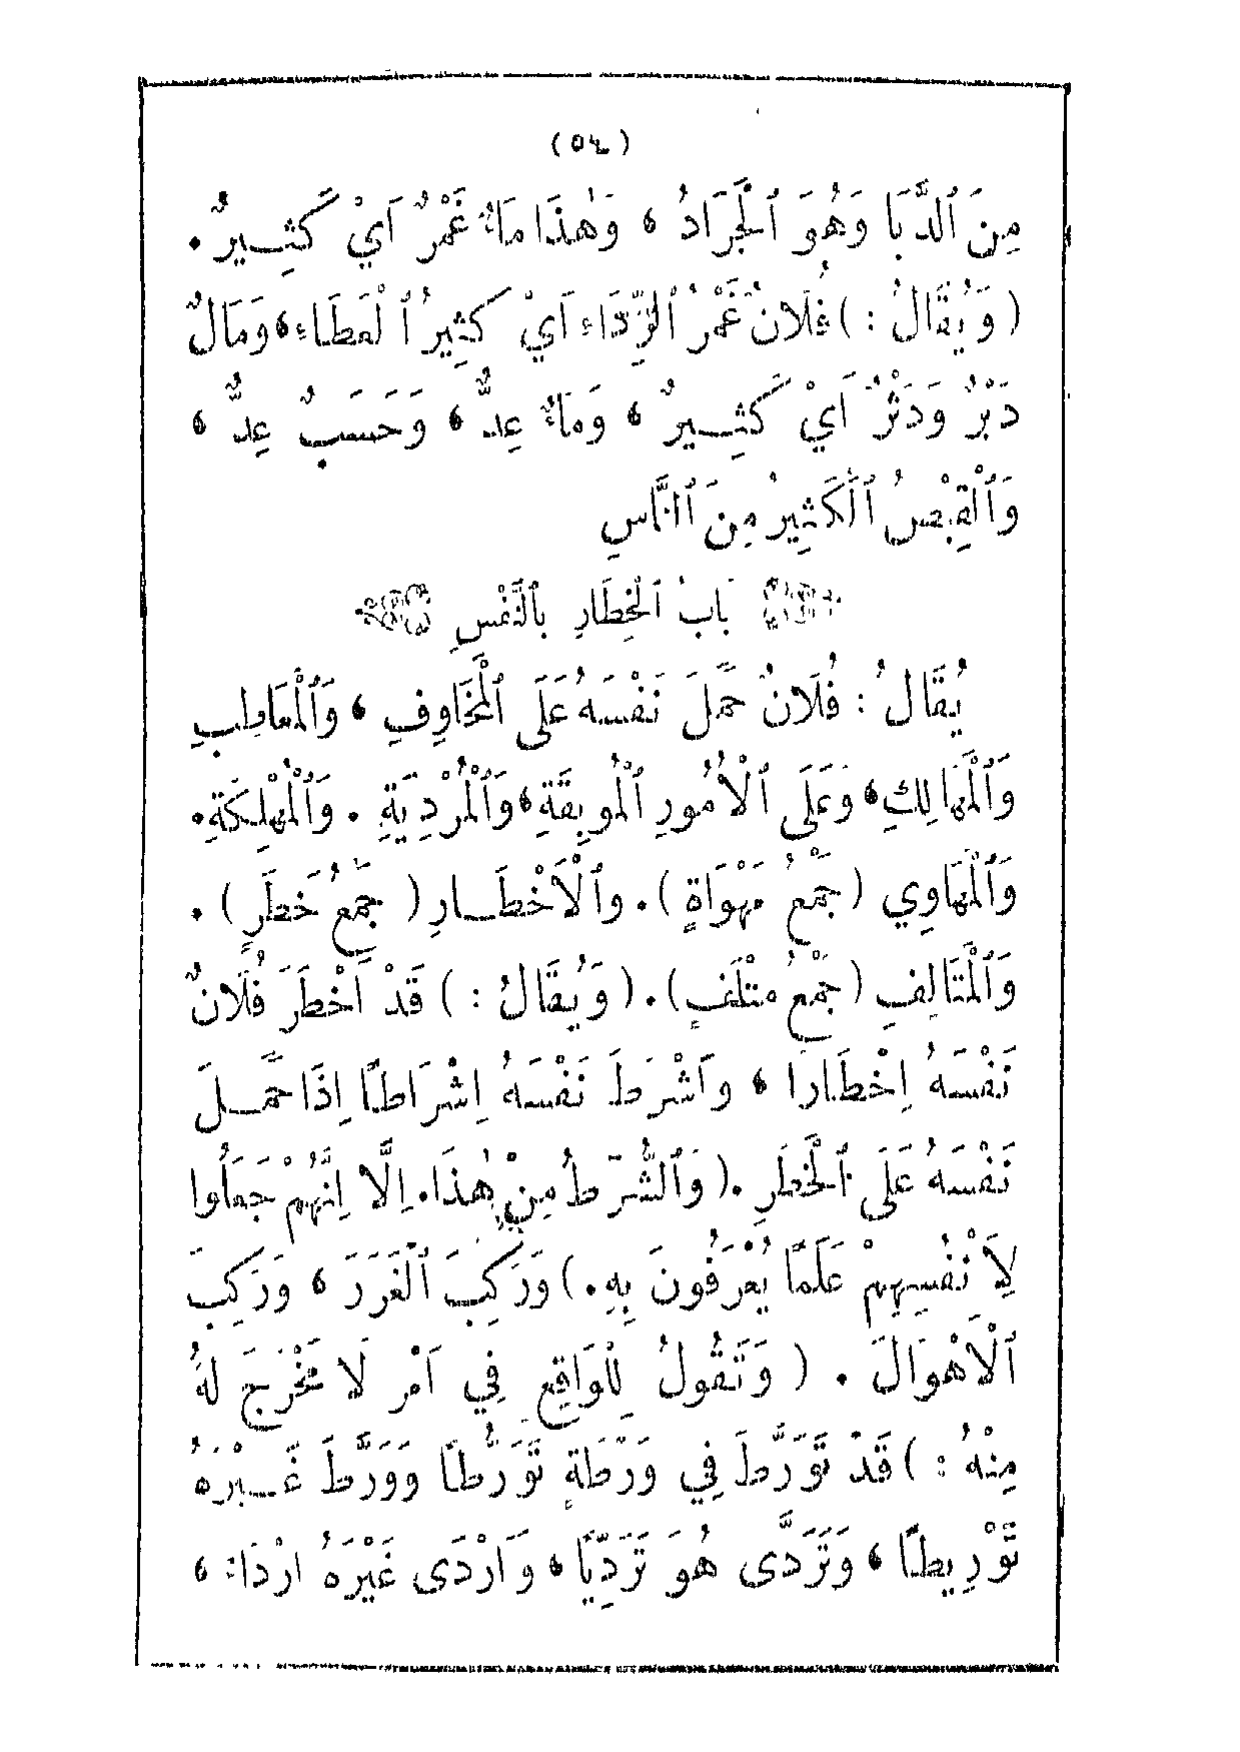 (٥٤)
مِنَ ٱلدَّبَا وَهُوَ ٱلْجَرَادُ ، وَهٰذَا مَاءٌ غَمْرٌ اَيْ كَثِيرٌ .
( وَيُقَالُ : ) فُلَانٌ غَمْرُ ٱلرِّدَاءِ اَيْ كَثِيرُ ٱلْعَطَاءِ ، وَمَالٌ
دَبْرٌ وَدَثْرٌ اَيْ كَثِيرٌ ، وَمَاءٌ عِدٌّ ، وَحَسَبٌ عِدٌّ ،
وَٱلْقِبْصُ ٱلْكَثِيرُ مِنَ ٱلنَّاسِ
بَابُ ٱلْخِطَارِ بِٱلنَّفْسِ
يُقَالُ : فُلَانٌ حَمَلَ نَفْسَهُ عَلَى ٱلْمَخَاوِفِ ، وَٱلْمَعَاطِبِ
وَٱلْمَهَالِكِ ، وَعَلَى ٱلْأُمُورِ ٱلْمُوبِقَةِ ، وَٱلْمُرْدِيَةِ . وَٱلْمُهْلِكَةِ .
وَٱلْمَهَاوِي ( جَمْعُ مَهْوَاةٍ ) . وٱلْاَخْطَارِ ( جَمْعُ خَطَرٍ ) .
وَٱلْمَتَالِفِ ( جَمْعُ مَتْلَفٍ ) . ( وَيُقَالُ : ) قَدْ اَخْطَرَ فُلَانٌ
نَفْسَهُ اِخْطَارًا ، وَاَشْرَطَ نَفْسَهُ اِشْرَاطًا اِذَا حَمَلَ
نَفْسَهُ عَلَى ٱلْخَطَرِ . ( وَٱلشُّرَطُ مِنْ هٰذَا . اِلَّا اِنَّهُمْ جَعَلُوا
لِاَنْفُسِهِمْ عَلَمًا يُعْرَفُونَ بِهِ . ) وَرَكِبَ ٱلْغَرَرَ ، وَرَكِبَ
ٱلْاَهْوَالَ . ( وَتَقُولُ لِلْوَاقِعِ فِي اَمْرٍ لَا مَخْرَجَ لَهُ
مِنْهُ : ) قَدْ تَوَرَّطَ فِي وَرْطَةٍ تَوَرُّطًا وَوَرَّطَ غَيْرَهُ
تَوْرِيطًا ، وَتَرَدَّى هُوَ تَرَدِّيًا ، وَاَرْدَى غَيْرَهُ اِرْدَاءً ،